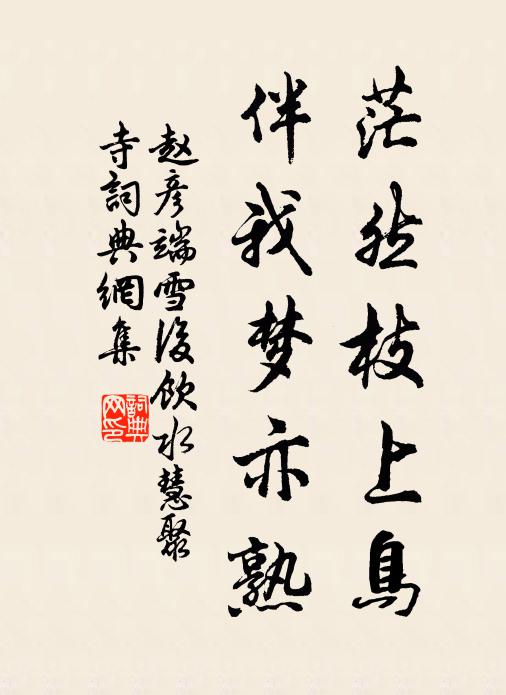 茫然枝上鳥
伴我梦亦熟
赵彦端雪後飲水慧聚
寺詞典網集
詞典
网印